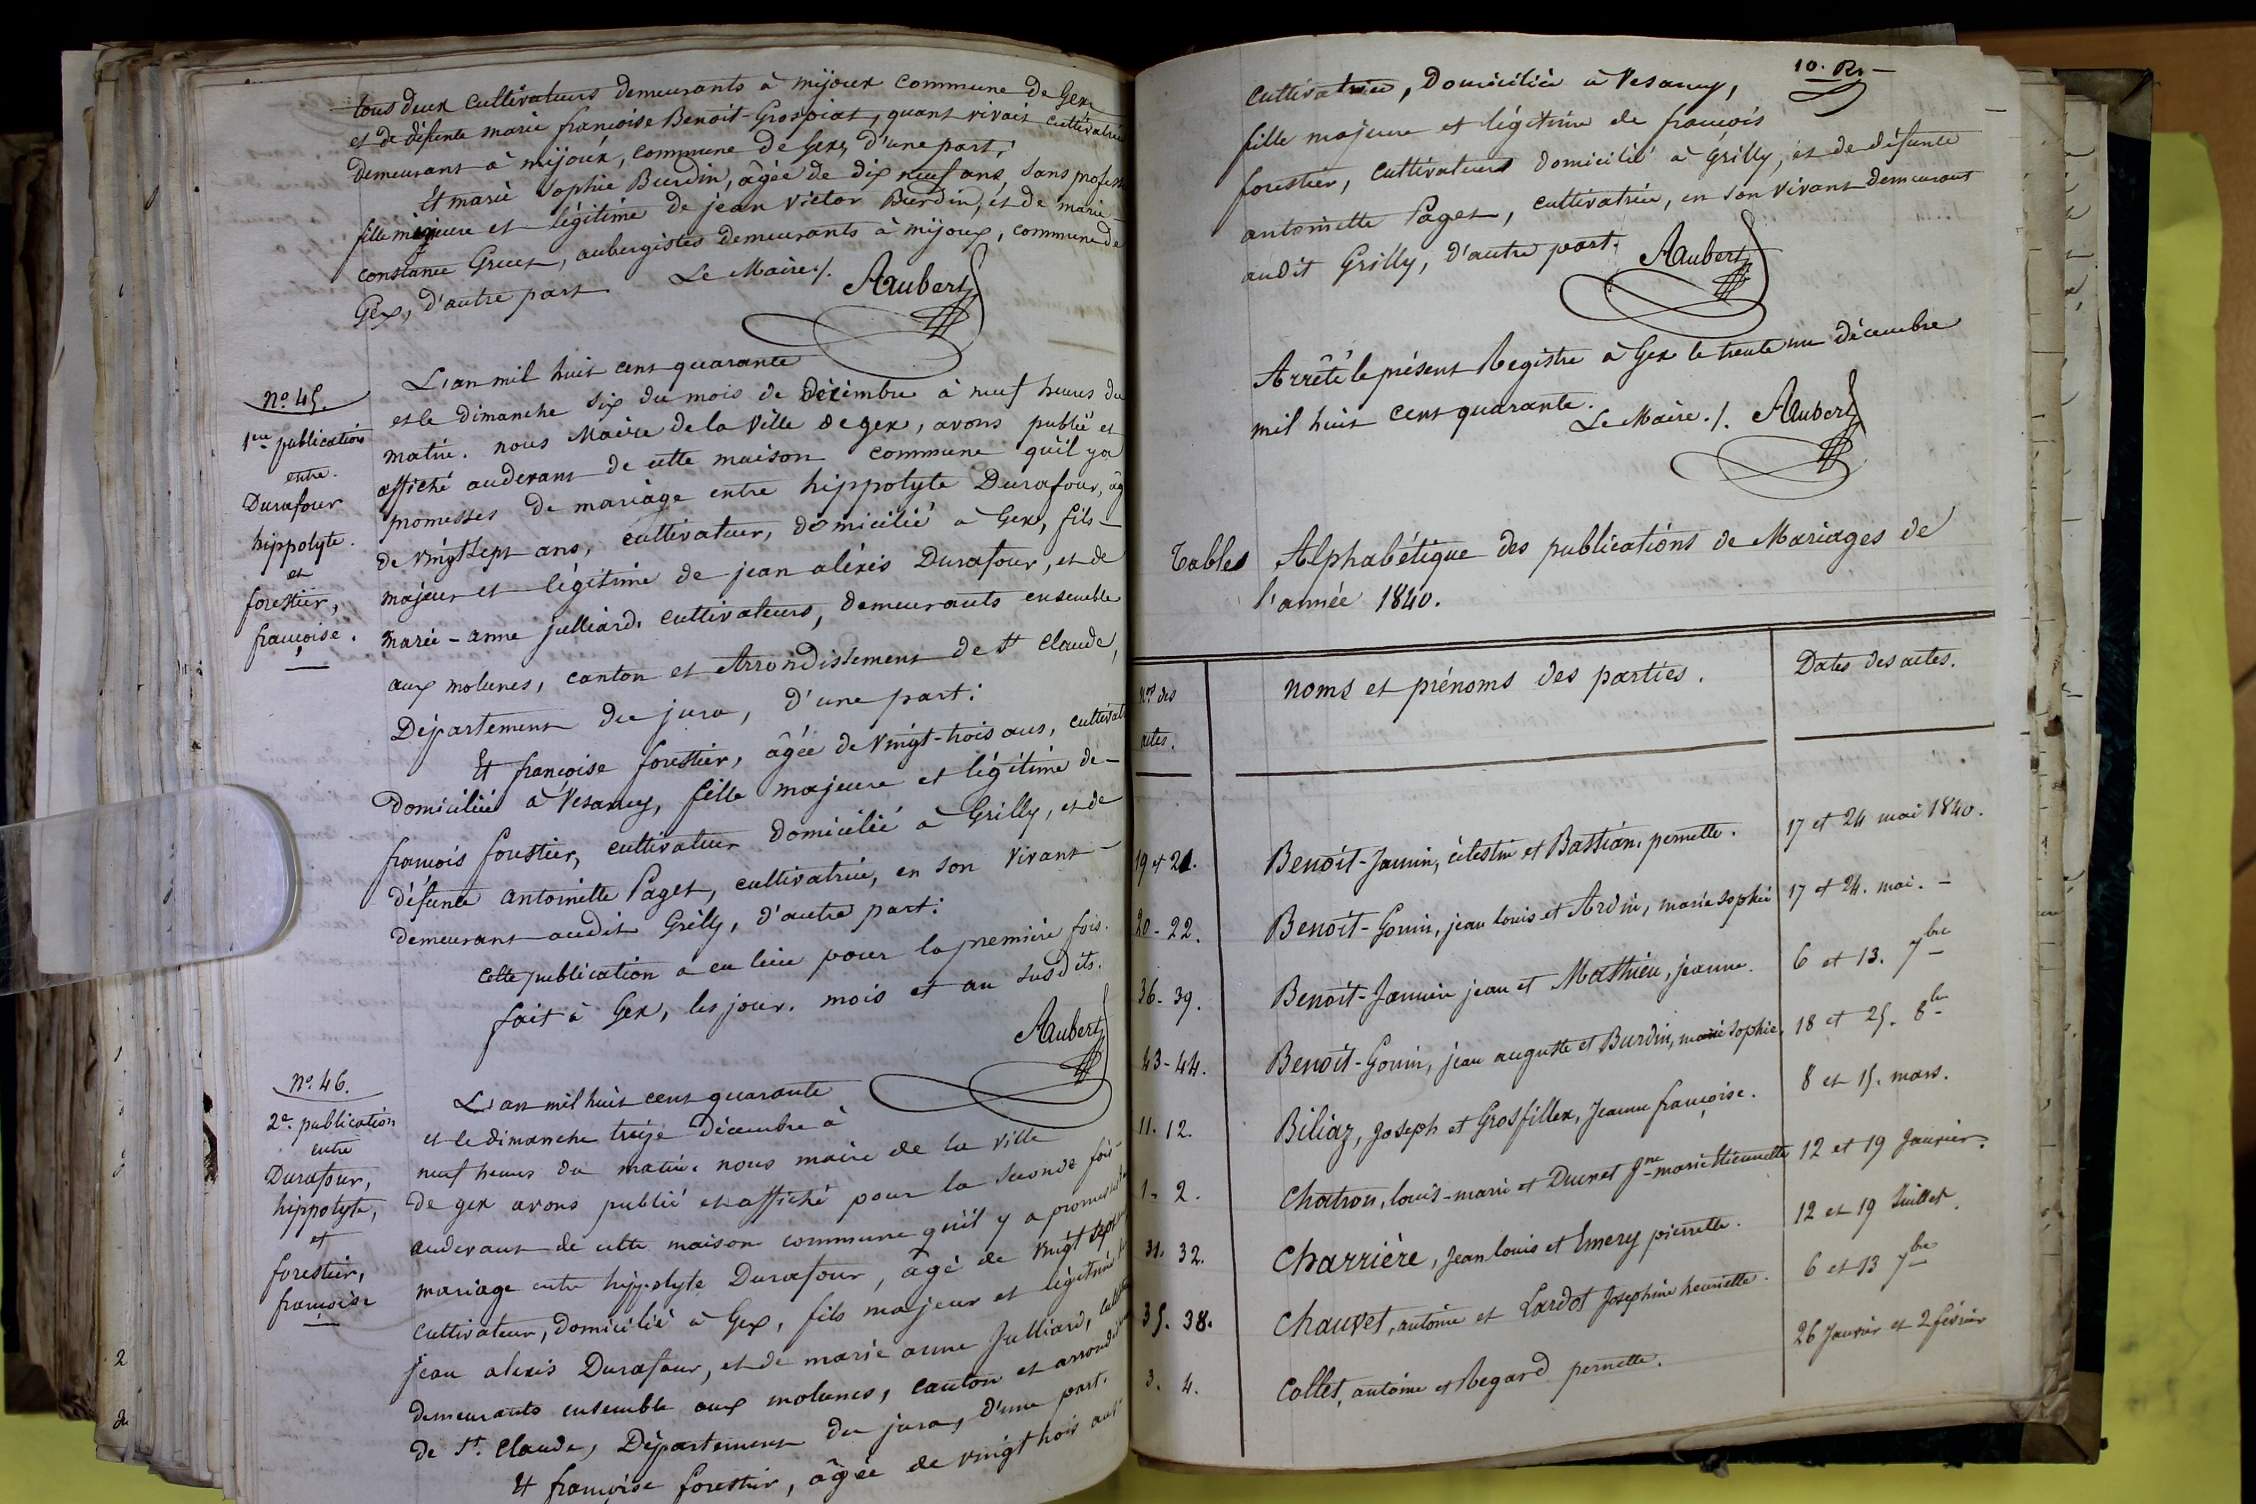 tous deux cultivateurs demeurants à mijoux commune de Gex
et de défunte marie françoise Benoit-Grospiat, quant vivait cultivatrice
demeurant à mijoux, commune de Gex, d'une part;
Et marie Sophie Burdin, âgée de dix neuf ans, sans profess
fille mineure et légitime de jean victor Burdin, et de marie
constance Gruet, aubergistes demeurants à mijoux, commune de
Gex, d'autre part Le Maire ./. Aubert
N.o 45.
1ere publication
entre
Durafour
hippolyte.
et
forestier,
françoise.
L'an mil huit cent quarante
et le dimanche six du mois de décembre à neuf heures du
matin. nous Maire de la Ville de gex, avons publié et
affiché audevant de cette maison commune qu'il y a
promesses de mariage entre hippolyte Durafour, âg
de vingt sept ans, cultivateur, domicilié à Gex, fils
majeur et légitime de jean aléxis Durafour, et de
marie-anne julliard, cultivateurs, demeurants ensemble
aux molunes, canton et Arrondissement de St Claude,
Département du jura, d'une part:
Et françoise forestier, âgée de vingt-trois ans, cultivat
domiciliée à Vesancy, fille majeure et légitime de
françois forestier, cultivateur domicilié à Grilly, et de
défunte antoinette Paget, cultivatrice, en son vivant
demeurant audit Grilly, d'autre part:
cette publication a eu lieu pour la première fois.
fait à Gex, les jour, mois et an susdits.
Aubert
N.o 46.
2e. publication
entre
Durafour,
hippolyte,
et
forestier,
françoise
L'an mil huit cent quarante
et le dimanche treize Décembre à
neuf heures du matin. nous maire de la ville
de gex avons publié et affiché pour la seconde fois
audevant de cette maison commune qu'il y a promesses de
mariage entre hippolyte Durafour, âgé de vingt sept
cultivateur, domicilié à Gex, fils majeur et légitime
jean alexis Durafour, et de marie anne Julliard, cultiv
demeurants ensemble aux molunes, canton et arrondi
de St. Claude, Département du jura, d'une part.
Et françoise forestier, âgée de vingt trois ans
10. Rs
cultivatrice, Domiciliée à Vesancy,
fille majeure et légitime de françois
forestier, cultivateur domicilié à Grilly, et de défunte
antoinette Paget, cultivatrice, en son vivant demeurant
audit Grilly, d'autre part. Aubert
Arrêté le présent Registre à Gex le trente un décembre
mil huit cent quarante.
Le Maire ./. Aubert
Tables Alphabétique des publications de Mariages de
l'année 1840.
Nos des
actes. noms et prénoms des parties. Dates des actes.
19 et 21. Benoit-Jannin, célestin et Bastian, pernette. 17 et 24 mai 1840.
20-22. Benoit-Gonin, jean louis et Ardin, marie Sophie 17 et 24. mai. -
36-39. Benoit-Jannin jean et Mathieu, jeanne. 6 et 13. 7bre
43-44. Benoit-Gonin, jean auguste et Burdin, marie Sophie. 18 et 25. 8bre
11. 12. Biliaz, Joseph et Grosfillex, Jeanne françoise. 8 et 15. mars.
1. 2. Chatron, louis-marie et Ducret Jne marie Etiennette 12 et 19 Janvier.
31. 32. Charrière, Jean louis et Emery pierrette. 12 et 19 Juillet.
35. 38. Chauvet, antoine et Lardot Josephine henriette. 6 et 13 7bre
3. 4. Collet, antoine et Regard pernette. 26 Janvier et 2 février